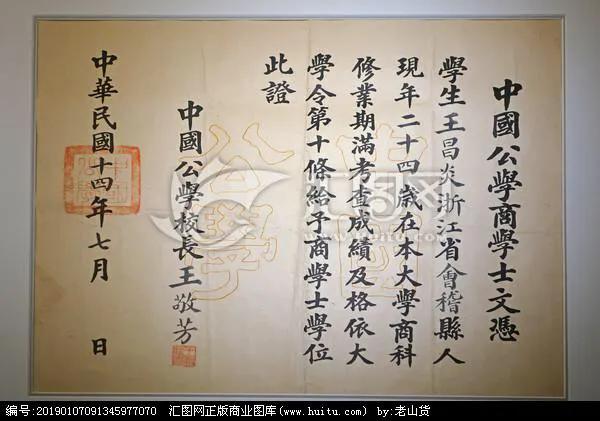 中國公學商學士文憑
學生王昌炎浙江省會稽縣人
現年二十四歲在本大學商科
修業期滿考查成績及格依大
學令第十條給予商學士學位
此證
中國公學校長王敬芳
中華民國十四年七月 日
公學
汇图网
www.huitu.com
编号:20190107091345977070 汇图网正版商业图库(www.huitu.com) by:老山货